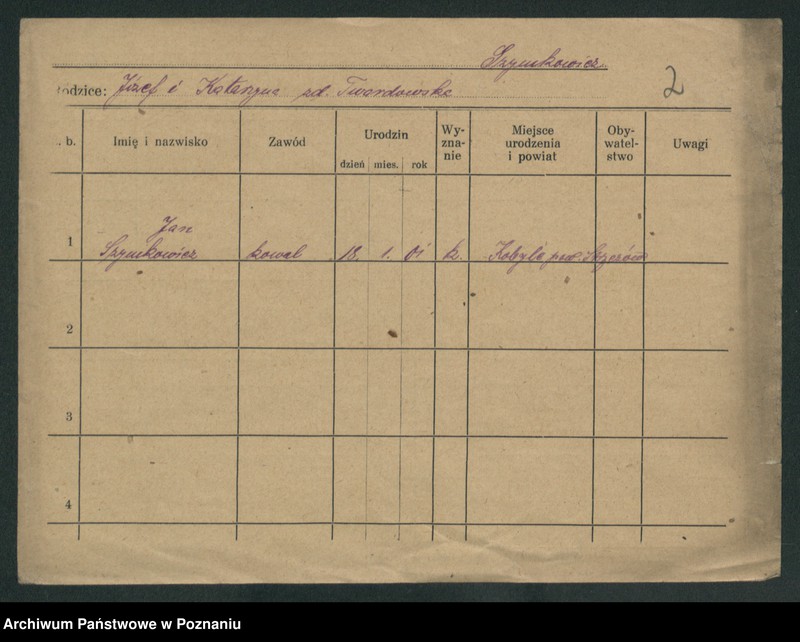 Szymkowicz
odzice: Józef i Katarzyna zd. Twardowska
2
. b.
Imię i nazwisko
Zawód
Urodzin
dzień mies. rok
Wy-
zna-
nie
Miejsce
urodzenia
i powiat
Oby-
watel-
stwo
Uwagi
1
Jan
Szymkowicz
kowal
18. 1. 01
k.
Kobyla pow.
2
3
4
Archiwum Państwowe w Poznaniu